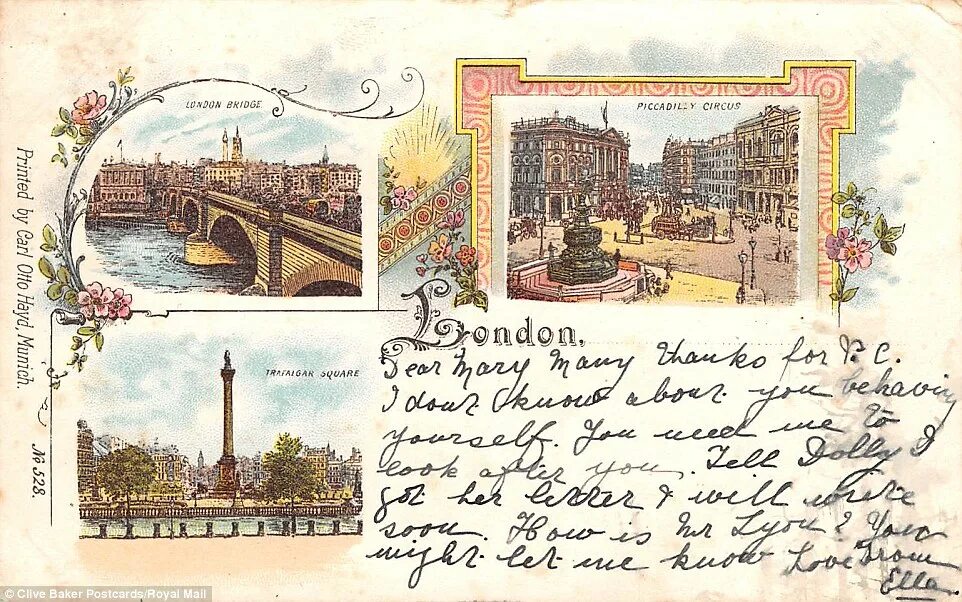 LONDON BRIDGE.
PICCADILLY CIRCUS
TRAFALGAR SQUARE
Printed by Carl Otto Hayd, Munich.
No 528.
London,
Dear Mary Many thanks for P.C.
I dont know about you behaving
yourself. You need me to
look after you. Tell Dolly I
got her letter & will write
soon. How is Mr Lyon? You
might let me know Love from
Ella.
© Clive Baker Postcards/Royal Mail